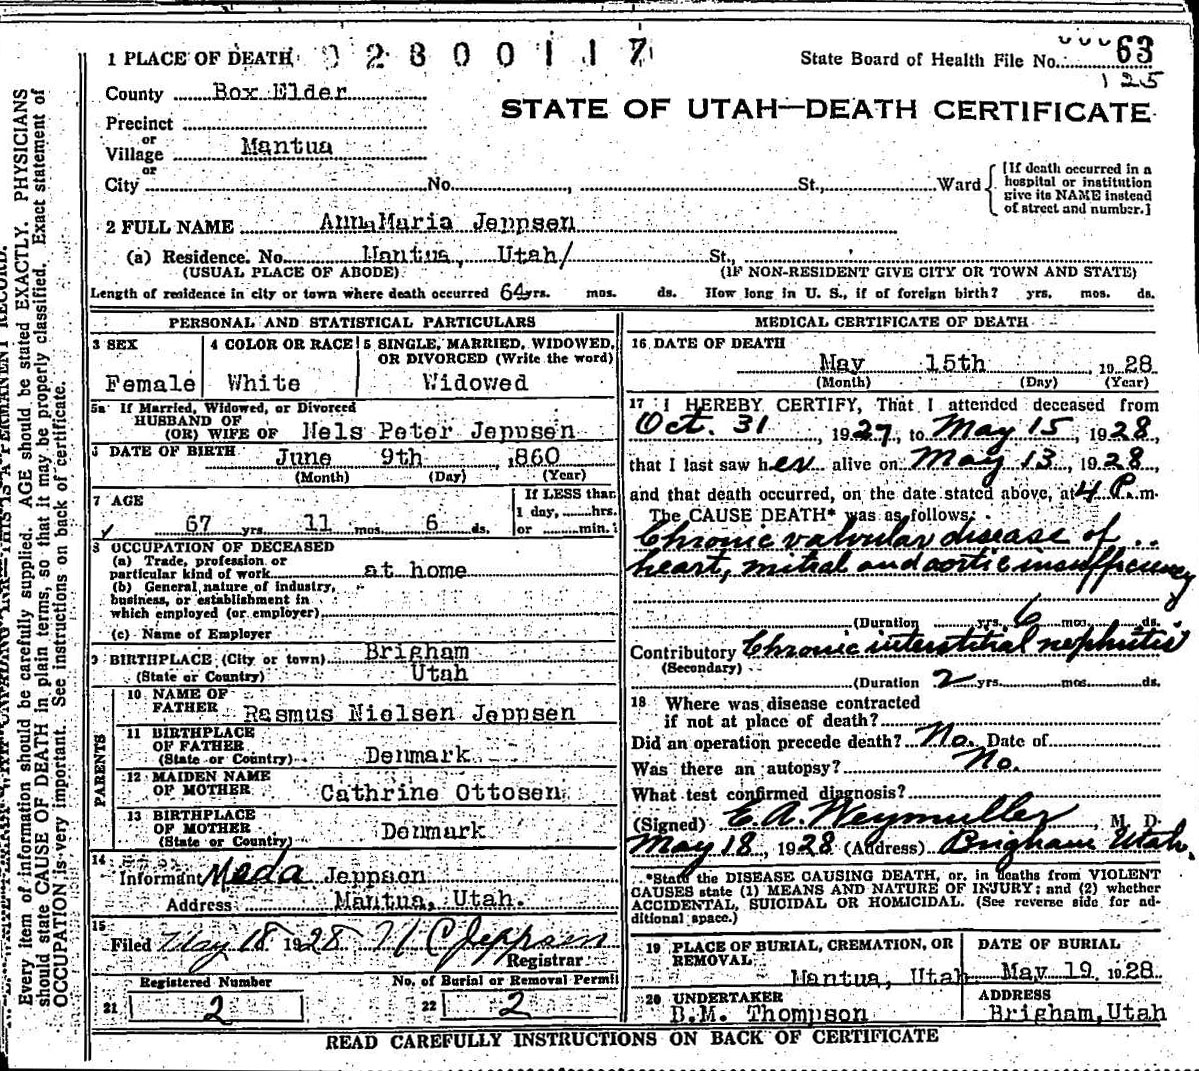 1 PLACE OF DEATH 02800117
State Board of Health File No. 00063
125
County Box Elder
STATE OF UTAH—DEATH CERTIFICATE
Precinct
or
Village Mantua
or
City No. , St., Ward
[If death occurred in a
hospital or institution
give its NAME instead
of street and number.]
2 FULL NAME Ann Maria Jeppsen
(a) Residence. No. Mantua, Utah/ St.,
(USUAL PLACE OF ABODE) (IF NON-RESIDENT GIVE CITY OR TOWN AND STATE)
Length of residence in city or town where death occurred 64 yrs. mos. ds. How long in U. S., if of foreign birth? yrs. mos. ds.
PERSONAL AND STATISTICAL PARTICULARS
3 SEX
Female
4 COLOR OR RACE
White
5 SINGLE, MARRIED, WIDOWED,
OR DIVORCED (Write the word)
Widowed
5a If Married, Widowed, or Divorced
HUSBAND OF
(OR) WIFE OF Nels Peter Jeppsen
DATE OF BIRTH June 9th, 1860
(Month) (Day) (Year)
7 AGE
67 yrs. 11 mos. 6 ds.
If LESS than
1 day, hrs.
or min.
8 OCCUPATION OF DECEASED
(a) Trade, profession or
particular kind of work at home
(b) General nature of industry,
business, or establishment in
which employed (or employer)
(c) Name of Employer
9 BIRTHPLACE (City or town) Brigham
(State or Country) Utah
PARENTS
10 NAME OF
FATHER Rasmus Nielsen Jeppsen
11 BIRTHPLACE
OF FATHER
(State or Country) Denmark
12 MAIDEN NAME
OF MOTHER Cathrine Ottosen
13 BIRTHPLACE
OF MOTHER
(State or Country) Denmark
14
Informant Meda Jeppson
Address Mantua, Utah.
15
Filed May 18 1928 N C Jeppsen
Registrar
Registered Number
21 2
No. of Burial or Removal Permit
22 2
MEDICAL CERTIFICATE OF DEATH
16 DATE OF DEATH
May 15th, 1928
(Month) (Day) (Year)
17 I HEREBY CERTIFY, That I attended deceased from
Oct. 31, 1927, to May 15, 1928,
that I last saw her alive on May 13, 1928
and that death occurred, on the date stated above, at 4 P. m.
The CAUSE DEATH* was as follows:
Chronic valvular disease of
heart, mitral and aortic insufficiency
(Duration yrs. 6 mos. ds.
Contributory Chronic interstitial nephritis
(Secondary)
(Duration 2 yrs. mos. ds.
18 Where was disease contracted
if not at place of death?
Did an operation precede death? No. Date of
Was there an autopsy? No.
What test confirmed diagnosis?
(Signed) E. A. Weymuller, M. D.
May 18, 1928 (Address) Brigham Utah.
*State the DISEASE CAUSING DEATH, or, in deaths from VIOLENT
CAUSES state (1) MEANS AND NATURE OF INJURY; and (2) whether
ACCIDENTAL, SUICIDAL OR HOMICIDAL. (See reverse side for ad-
ditional space.)
19 PLACE OF BURIAL, CREMATION, OR
REMOVAL
Mantua, Utah
DATE OF BURIAL
May 19 1928
20 UNDERTAKER
B.M. Thompson
ADDRESS
Brigham, Utah
READ CAREFULLY INSTRUCTIONS ON BACK OF CERTIFICATE
Every item of information should be carefully supplied. AGE should be stated EXACTLY. PHYSICIANS
should state CAUSE OF DEATH in plain terms, so that it may be properly classified. Exact statement of
OCCUPATION is very important. See instructions on back of certificate.